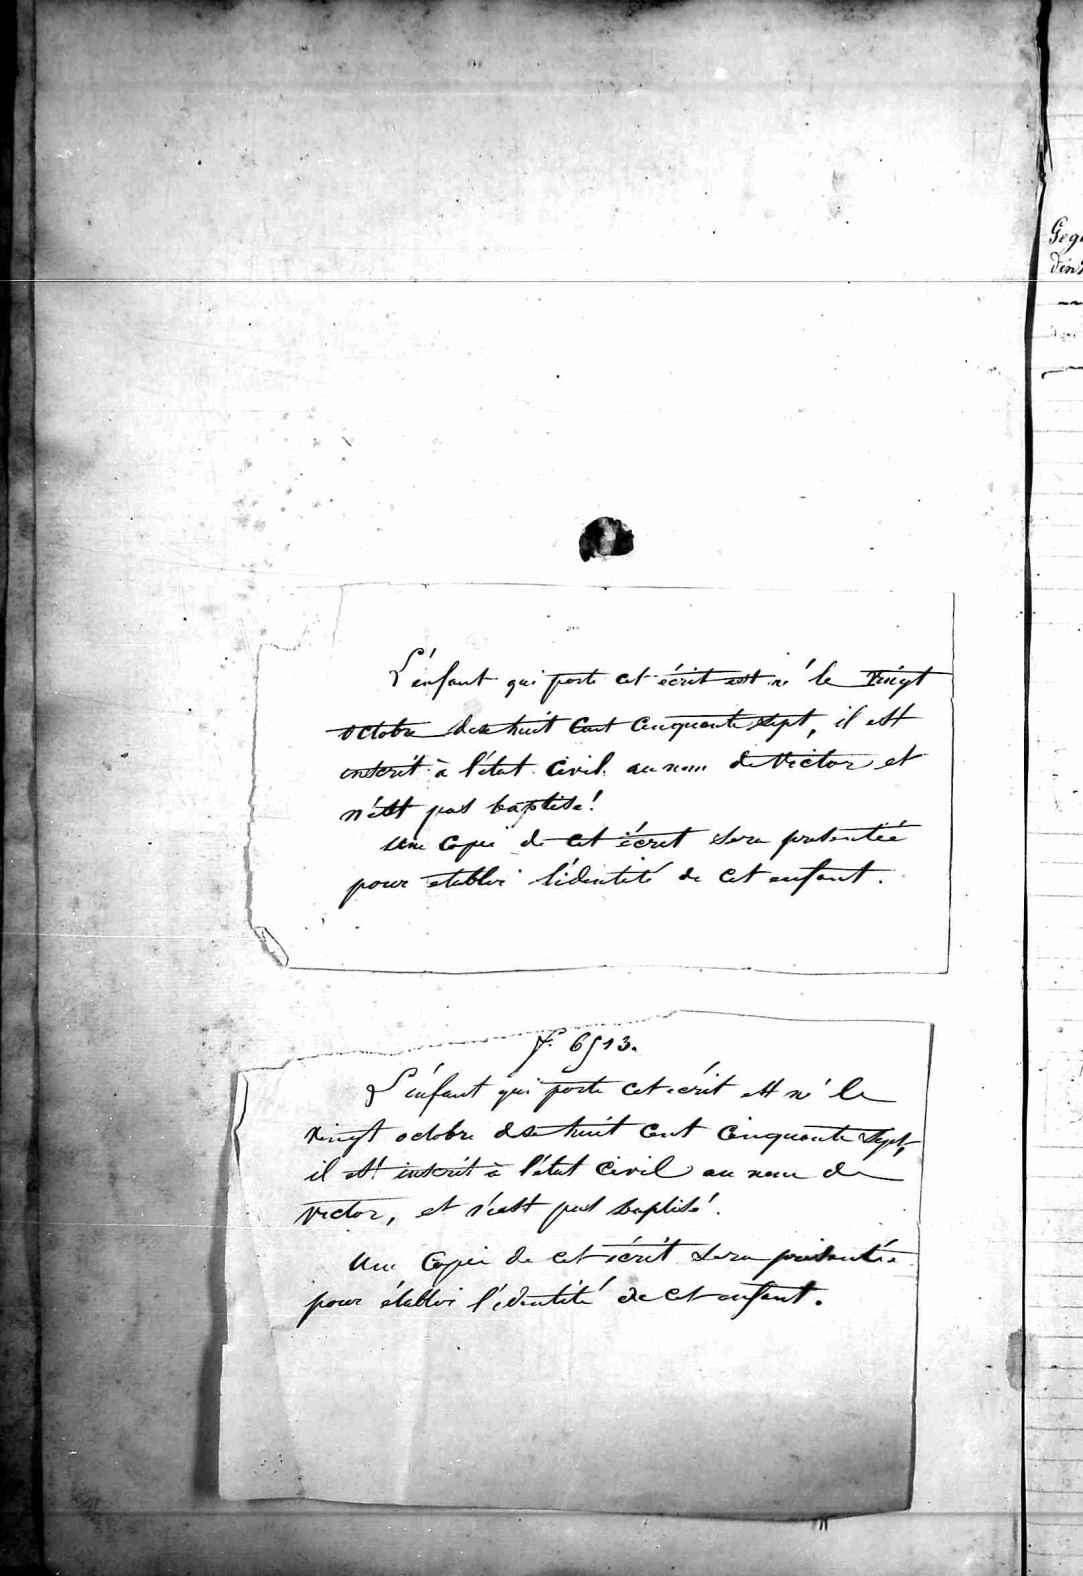 L'enfant qui porte cet écrit est né le vingt
octobre dix huit cent cinquante sept, il est
inscrit à l'état civil au nom de Victor et
n'est pas baptisé!
Une copie de cet écrit sera présentée
pour établir l'identité de cet enfant.
F. 6513.
L'enfant qui porte cet écrit est né le
vingt octobre dix huit cent cinquante sept,
il est inscrit à l'état civil au nom de
Victor, et n'est pas baptisé!
Une copie de cet écrit sera présentée
pour établir l'identité de cet enfant.